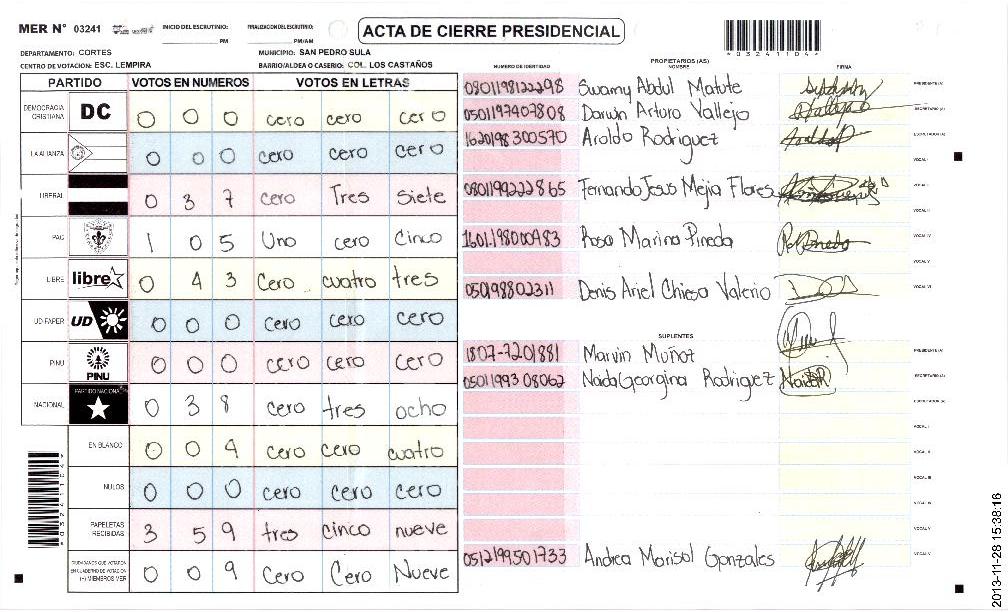 MER N° 03241
INICIO DEL ESCRUTINIO: PM
FINALIZACION DEL ESCRUTINIO: PM/AM
ACTA DE CIERRE PRESIDENCIAL
03241104
DEPARTAMENTO: CORTES
MUNICIPIO: SAN PEDRO SULA
CENTRO DE VOTACION: ESC. LEMPIRA
BARRIO/ALDEA O CASERIO: COL. LOS CASTAÑOS
PARTIDO VOTOS EN NUMEROS VOTOS EN LETRAS
DEMOCRACIA CRISTIANA DC 0 0 0 cero cero cero
LA ALIANZA 0 0 0 cero cero cero
LIBERAL 0 3 7 cero Tres siete
PAC 1 0 5 Uno cero cinco
LIBRE libre 0 4 3 Cero cuatro tres
UD-FAPER UD 0 0 0 cero cero cero
PINU PINU 0 0 0 cero cero cero
NACIONAL PARTIDO NACIONAL 0 3 8 cero tres ocho
EN BLANCO 0 0 4 cero cero cuatro
NULOS 0 0 0 cero cero cero
PAPELETAS RECIBIDAS 3 5 9 tres cinco nueve
CIUDADANOS QUE VOTARON EN CUADERNO DE VOTACION (+) MIEMBROS MER 0 0 9 Cero Cero Nueve
PROPIETARIOS (AS)
NUMERO DE IDENTIDAD NOMBRE FIRMA
0801198122298 Swamy Abdul Matute PRESIDENTE (A)
0501197407808 Darwin Arturo Vallejo SECRETARIO (A)
1620198300570 Aroldo Rodriguez ESCRUTADOR (A)
VOCAL I
0801199222865 Fernando Jesus Mejia Flores VOCAL II
VOCAL III
1601198000483 Rosa Marina Pineda VOCAL IV
VOCAL V
050198802311 Denis Ariel Chiesa Valerio VOCAL VI
SUPLENTES
1807-7201881 Marvin Muñoz PRESIDENTE (A)
0501199308062 Naida Georgina Rodriguez SECRETARIO (A)
ESCRUTADOR (A)
VOCAL I
VOCAL II
VOCAL III
VOCAL IV
VOCAL V
0512199501733 Andrea Marisol Gonzales
2013-11-28 15:38:16